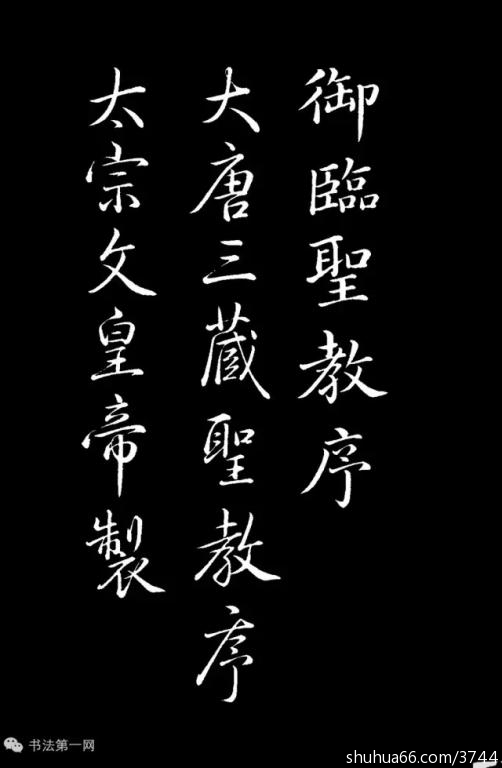 御臨聖教序
大唐三蔵聖教序
太宗文皇帝製
书法第一网
shuhua66.com/3744